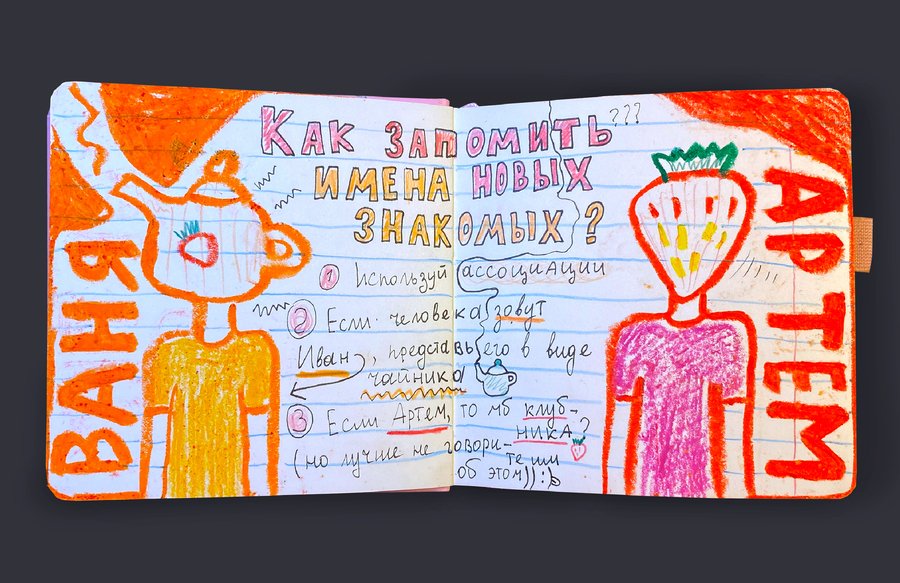 Как запомить ???
имена новых
знакомых?
ВАНЯ
1 Используй ассоциации
2 Если человека зовут
Иван, представь его в виде
чайника
3 Если Артем, то мб клуб-
ника?
(но лучше не говори-
те им
об этом)) :)
АРТЕМ